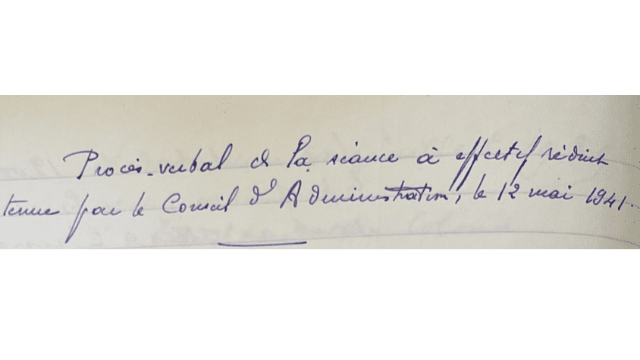 Procès-verbal de la séance à effectif réduit
tenue par le Conseil d'Administration, le 12 mai 1941.